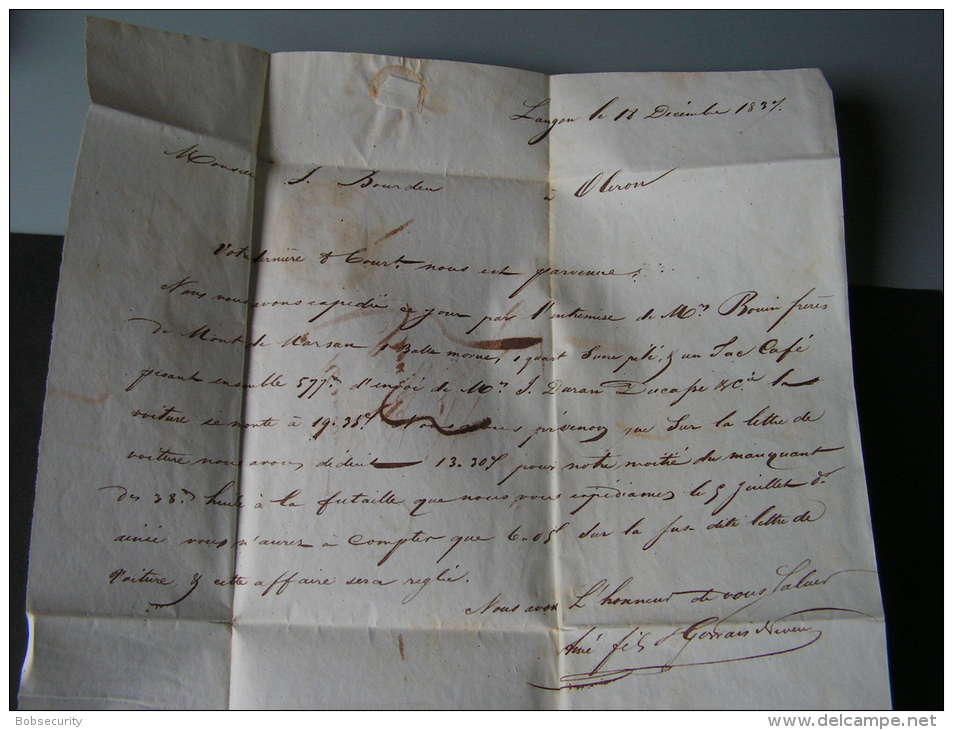 Langon le 18 Décembre 1837.
Monsieur J. Bourdeu à Oleron
Votre dernière & Court. nous est parvenue.
Nous vous avons expédié ce jour par l'entremise de Mrs Bouin frères
de Mont de Marsan 1 Balle morue, 1 quart Sucre pilé, & un Sac Café
pesant ensemble 577 d'envoi de Mrs J. Duran Ducasse & Cie la
voiture se monte à 19.35c Nous vous prévenons que Sur la lettre de
voiture nous avons déduit 13.30c pour notre moitié du manquant
des 38 huile à la futaille que nous vous expédiames le 5 Juillet dr
ainsi vous n'aurez à Compter que 6.05c Sur la sus dite lettre de
Voiture & cette affaire sera reglée.
Nous avons L'honneur de vous Saluer
Amé fils & Gervais Neveu
Bobsecurity
www.delcampe.net